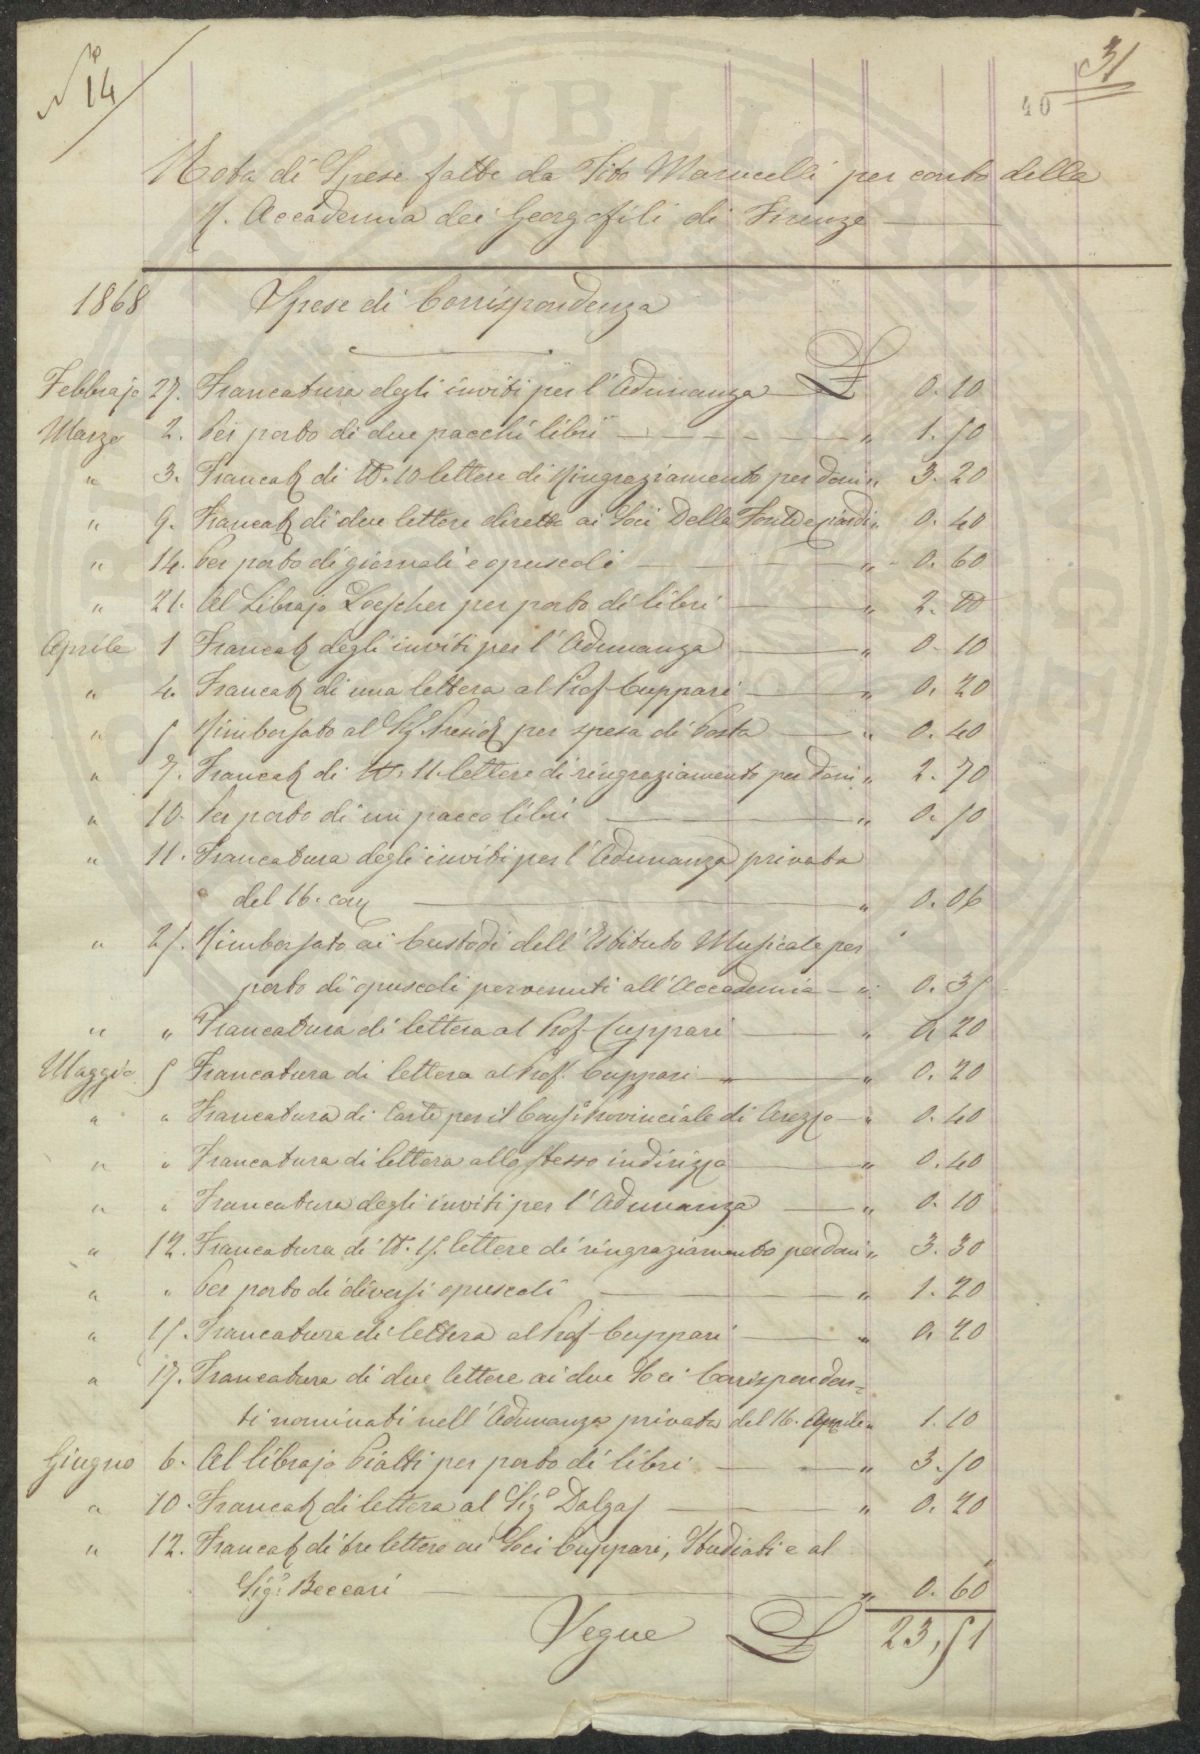 N.º 14
31
40
Nota di Spese fatte da Tito Marucelli per conto della
R. Accademia dei Georgofili di Firenze
1868 Spese di Corrispondenza
Febbrajo 27. Francatura degli inviti per l'Adunanza £ 0. 10
Marzo 2. Per porto di due pacchi libri " 1. 50
" 3. Francatª di N. 10 lettere di Ringraziamento per doni " 3. 20
" 9. Francatª di due lettere dirette ai Socii Della Fonte e " 0. 40
" 14. Per porto di giornali e opuscoli " 0. 60
" 21. Al Librajo Loescher per porto di libri " 2. 00
Aprile 1 Francatª degli inviti per l'Adunanza " 0. 10
" 4. Francatª di una lettera al Prof Cuppari " 0. 20
" 5 Rimborsato al Sig. Presidª per spesa di Posta " 0. 40
" 7. Francatª di N. 11 lettere di ringraziamento per doni " 2. 70
" 10. Per porto di un pacco libri " 0. 50
" 11. Francatura degli inviti per l'Adunanza privata
del 16. corrª " 0. 06
" 25. Rimborsato ai Custodi dell'Istituto Musicale per
porto di opuscoli pervenuti all'Accademia " 0. 35
" " Francatura di lettera al Prof Cuppari " 0. 20
Maggio 5 Francatura di lettera al Prof. Cuppari " 0. 20
" " Francatura di Carte per il Consº Provinciale di Arezzo " 0. 40
" " Francatura di lettera allo stesso indirizzo " 0. 40
" " Francatura degli inviti per l'Adunanza " 0. 10
" 12. Francatura di N. 15. lettere di ringraziamento per doni " 3. 30
" " Per porto di diversi opuscoli " 1. 20
" 15. Francatura di lettera al Prof Cuppari " 0. 20
" 17. Francatura di due lettere ai due Soci Corrisponden=
ti nominati nell'Adunanza privata del 16. Aprile " 1. 10
Giugno 6. Al librajo Piatti per porto di libri " 3. 50
" 10. Francatª di lettera al Sigº Dalgas " 0. 20
" 12. Francatª di tre lettere ai Soci Cuppari, Studiati e al
Sigº Beccari " 0. 60
Segue £ 23, 51